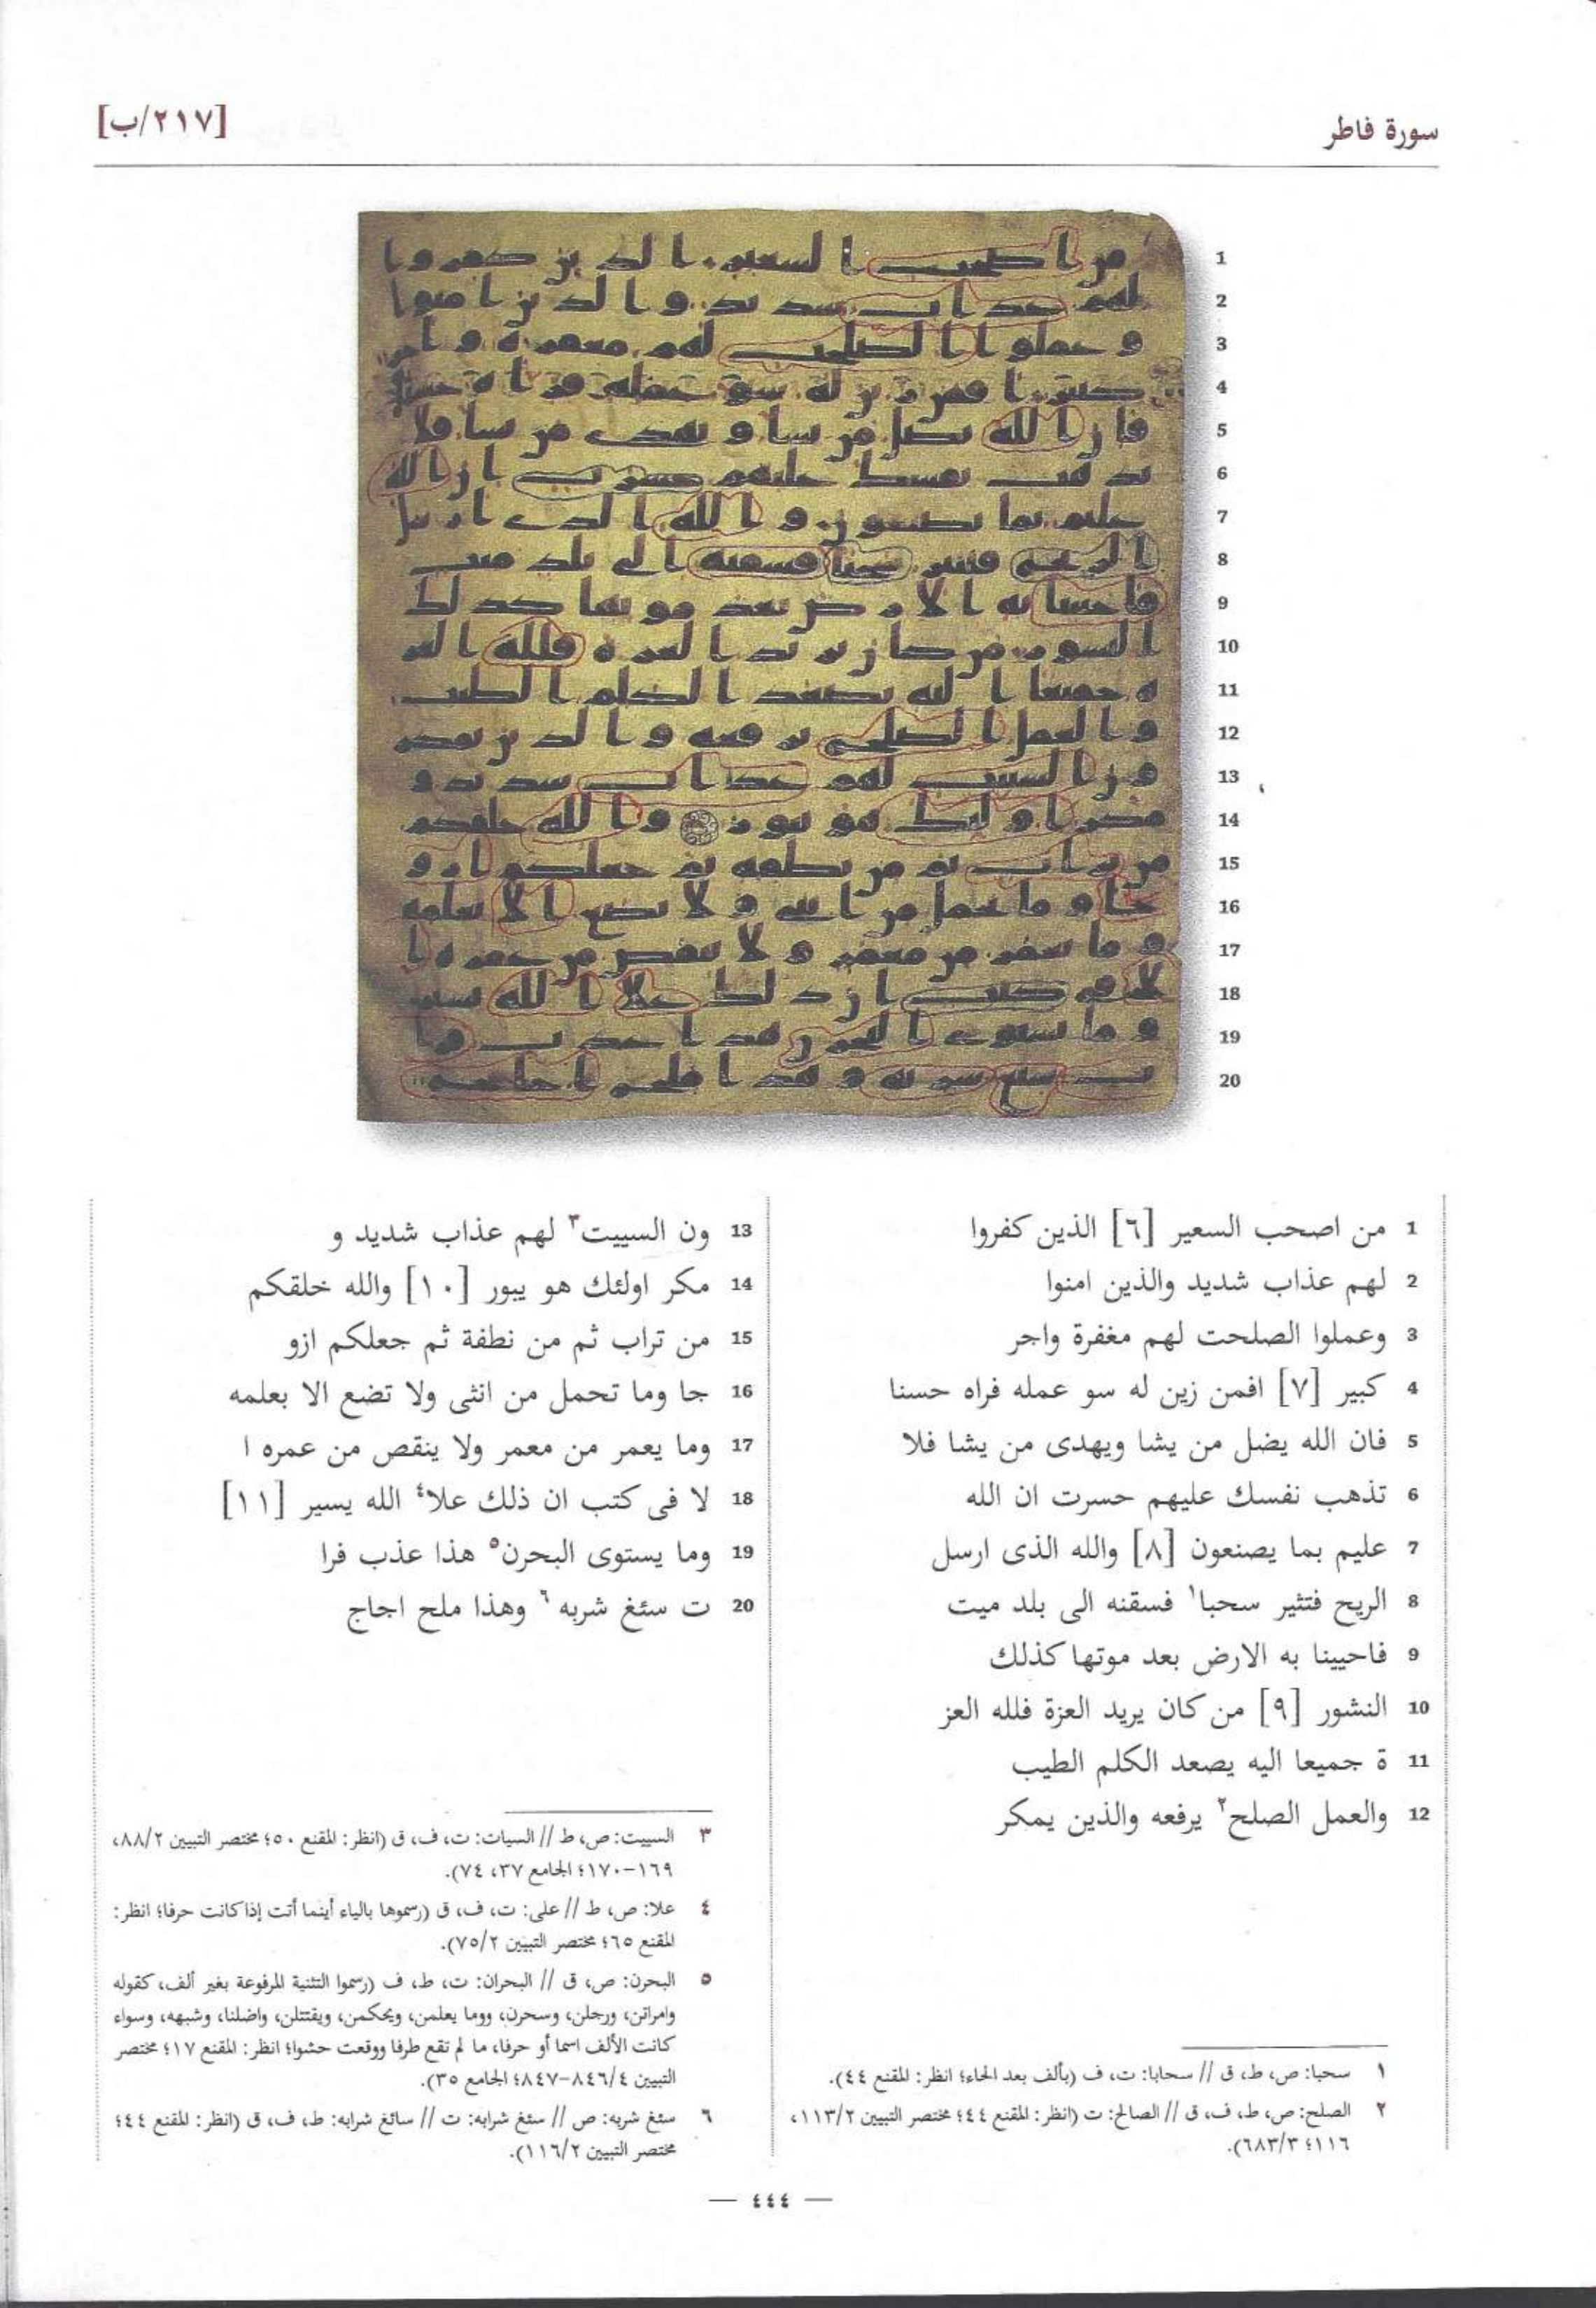 سورة فاطر
[٢١٧/ب]
1
2
3
4
5
6
7
8
9
10
11
12
13
14
15
16
17
18
19
20
1 من اصحب السعير [٦] الذين كفروا
2 لهم عذاب شديد والذين امنوا
3 وعملوا الصلحت لهم مغفرة واجر
4 كبير [٧] افمن زين له سو عمله فراه حسنا
5 فان الله يضل من يشا ويهدى من يشا فلا
6 تذهب نفسك عليهم حسرت ان الله
7 عليم بما يصنعون [٨] والله الذى ارسل
8 الريح فتثير سحبا١ فسقنه الى بلد ميت
9 فاحيينا به الارض بعد موتها كذلك
10 النشور [٩] من كان يريد العزة فلله العز
11 ة جميعا اليه يصعد الكلم الطيب
12 والعمل الصلح٢ يرفعه والذين يمكر
١ سحبا: ص، ط، ق // سحابا: ت، ف (بألف بعد الحاء؛ انظر: المقنع ٤٤).
٢ الصلح: ص، ط، ف، ق // الصالح: ت (انظر: المقنع ٤٤؛ مختصر التبيين ١١٣/٢،
١١٦؛ ٦٨٣/٣).
13 ون السييت٣ لهم عذاب شديد و
14 مكر اولئك هو يبور [١٠] والله خلقكم
15 من تراب ثم من نطفة ثم جعلكم ازو
16 جا وما تحمل من انثى ولا تضع الا بعلمه
17 وما يعمر من معمر ولا ينقص من عمره ا
18 لا فى كتب ان ذلك علا٤ الله يسير [١١]
19 وما يستوى البحرن٥ هذا عذب فرا
20 ت سئغ شربه٦ وهذا ملح اجاج
٣ السييت: ص، ط // السيات: ت، ف، ق (انظر: المقنع ٥٠؛ مختصر التبيين ٨٨/٢،
١٦٩-١٧٠؛ الجامع ٣٧، ٧٤).
٤ علا: ص، ط // على: ت، ف، ق (رسموها بالياء أينما أتت إذا كانت حرفا؛ انظر:
المقنع ٦٥؛ مختصر التبيين ٧٥/٢).
٥ البحرن: ص، ق // البحران: ت، ط، ف (رسموا التثنية المرفوعة بغير ألف، كقوله
وامراتن، ورجلن، وسحرن، ووما يعلمن، ويحكمن، ويقتتلن، واضلنا، وشبهه، وسواء
كانت الألف اسما أو حرفا، ما لم تقع طرفا ووقعت حشوا؛ انظر: المقنع ١٧؛ مختصر
التبيين ٨٤٦/٤-٨٤٧؛ الجامع ٣٥).
٦ سئغ شربه: ص // سئغ شرابه: ت // سائغ شرابه: ط، ف، ق (انظر: المقنع ٤٤؛
مختصر التبيين ١١٦/٢).
— ٤٤٤ —